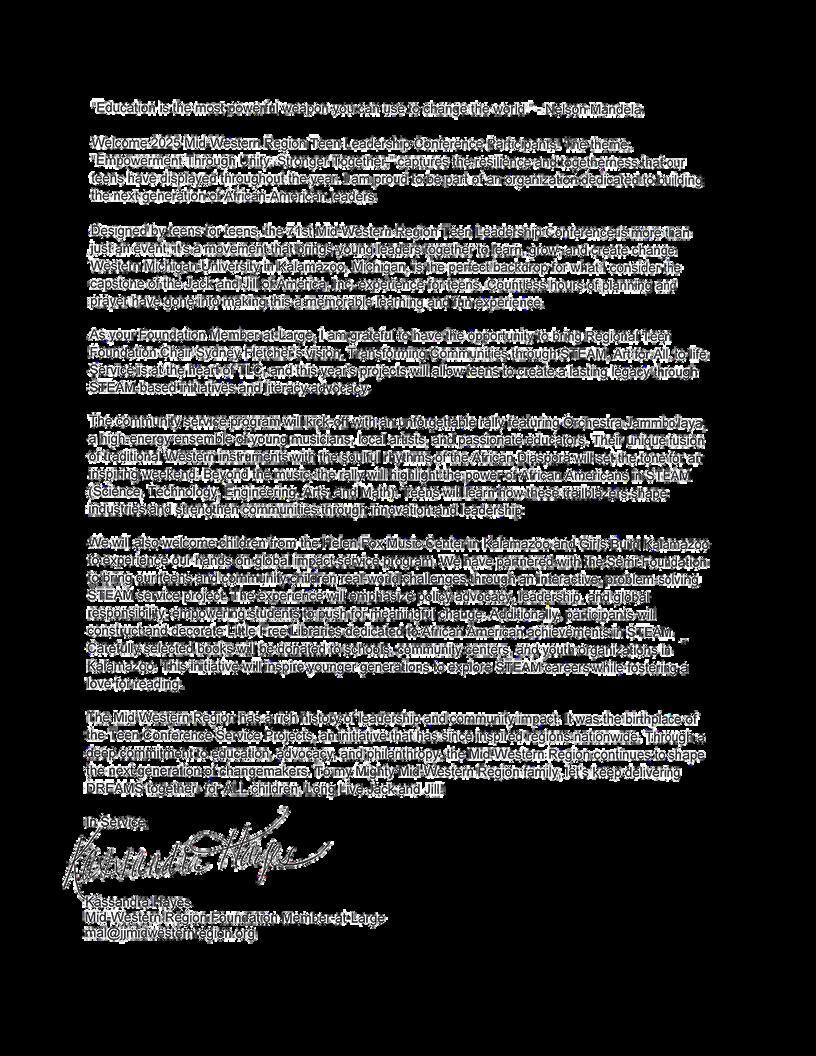 "Education is the most powerful weapon you can use to change the world." - Nelson Mandela
Welcome 2025 Mid-Western Region Teen Leadership Conference Participants! The theme,
"Empowerment Through Unity: Stronger Together," captures the resilience and togetherness that our
teens have displayed throughout the year. I am proud to be part of an organization dedicated to building
the next generation of African American leaders.
Designed by teens for teens, the 71st Mid-Western Region Teen Leadership Conference is more than
just an event; it's a movement that brings young leaders together to learn, grow, and create change.
Western Michigan University in Kalamazoo, Michigan, is the perfect backdrop for what I consider the
capstone of the Jack and Jill of America, Inc. experience for teens. Countless hours of planning and
prayer have gone into making this a memorable learning and fun experience.
As your Foundation Member-at-Large, I am grateful to have the opportunity to bring Regional Teen
Foundation Chair Sydney Fletcher's vision, Transforming Communities through STEAM, Art for All, to life.
Service is at the heart of TLC, and this year's projects will allow teens to create a lasting legacy through
STEAM-based initiatives and literacy advocacy.
The community service program will kick-off with an unforgettable rally featuring Orchestra Jammbolaya,
a high-energy ensemble of young musicians, local artists, and passionate educators. Their unique fusion
of traditional Western instruments with the soulful rhythms of the African Diaspora will set the tone for an
inspiring weekend. Beyond the music, the rally will highlight the power of African Americans in STEAM
(Science, Technology, Engineering, Arts, and Math). Teens will learn how these trailblazers shape
industries and strengthen communities through innovation and leadership.
We will also welcome children from the Helen Fox Music Center in Kalamazoo and Girls Build Kalamazoo
to experience our hands-on global impact service program. We have partnered with the Foundation
to bring our teens and community children real-world challenges through an interactive, problem-solving
STEAM service project. The experience will emphasize policy advocacy, leadership, and global
responsibility, empowering students to push for meaningful change. Additionally, participants will
construct and decorate Little Free Libraries dedicated to African American achievements in STEAM.
Carefully selected books will be donated to schools, community centers, and youth organizations in
Kalamazoo. This initiative will inspire younger generations to explore STEAM careers while fostering a
love for reading.
The Mid-Western Region has a rich history of leadership and community impact. It was the birthplace of
the Teen Conference Service Projects, an initiative that has since inspired regions nationwide. Through a
deep commitment to education, advocacy, and philanthropy, the Mid-Western Region continues to shape
the next generation of changemakers. To my Mighty Mid-Western Region family, let's keep delivering
DREAMS together for ALL children. Long Live Jack and Jill!
In Service,
Kassandra Hayes
Kassandra Hayes
Mid-Western Region Foundation Member-at-Large
mal@jjmidwesternregion.org